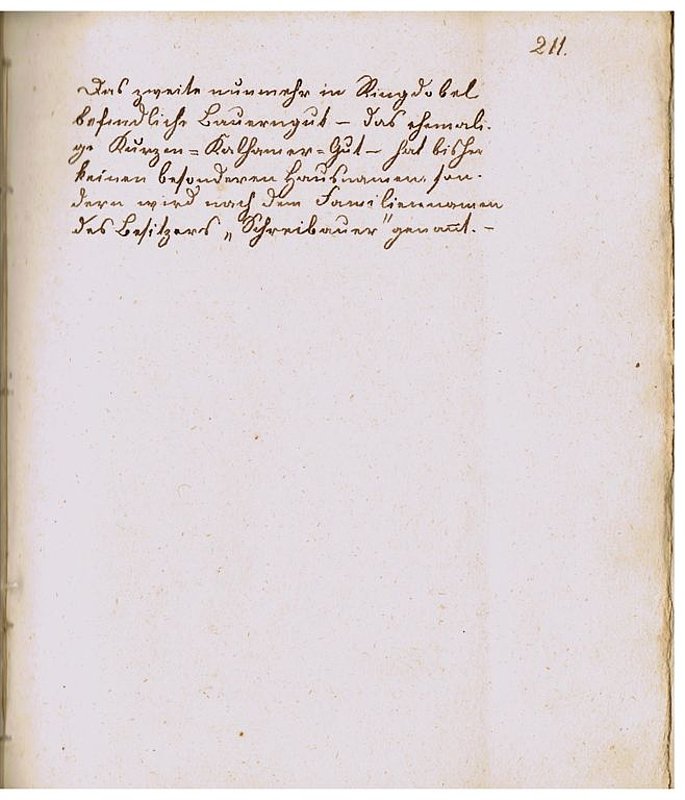 211.
Das zweite nunmehr in Ringdobel
befindliche Bauerngut – das ehemali-
ge Kurzen=Kalhamer=Gut – hat bisher
keinen besonderen Hausnamen, son-
dern wird nach dem Familiennamen
des Besitzers „Schreibauer" genannt. –